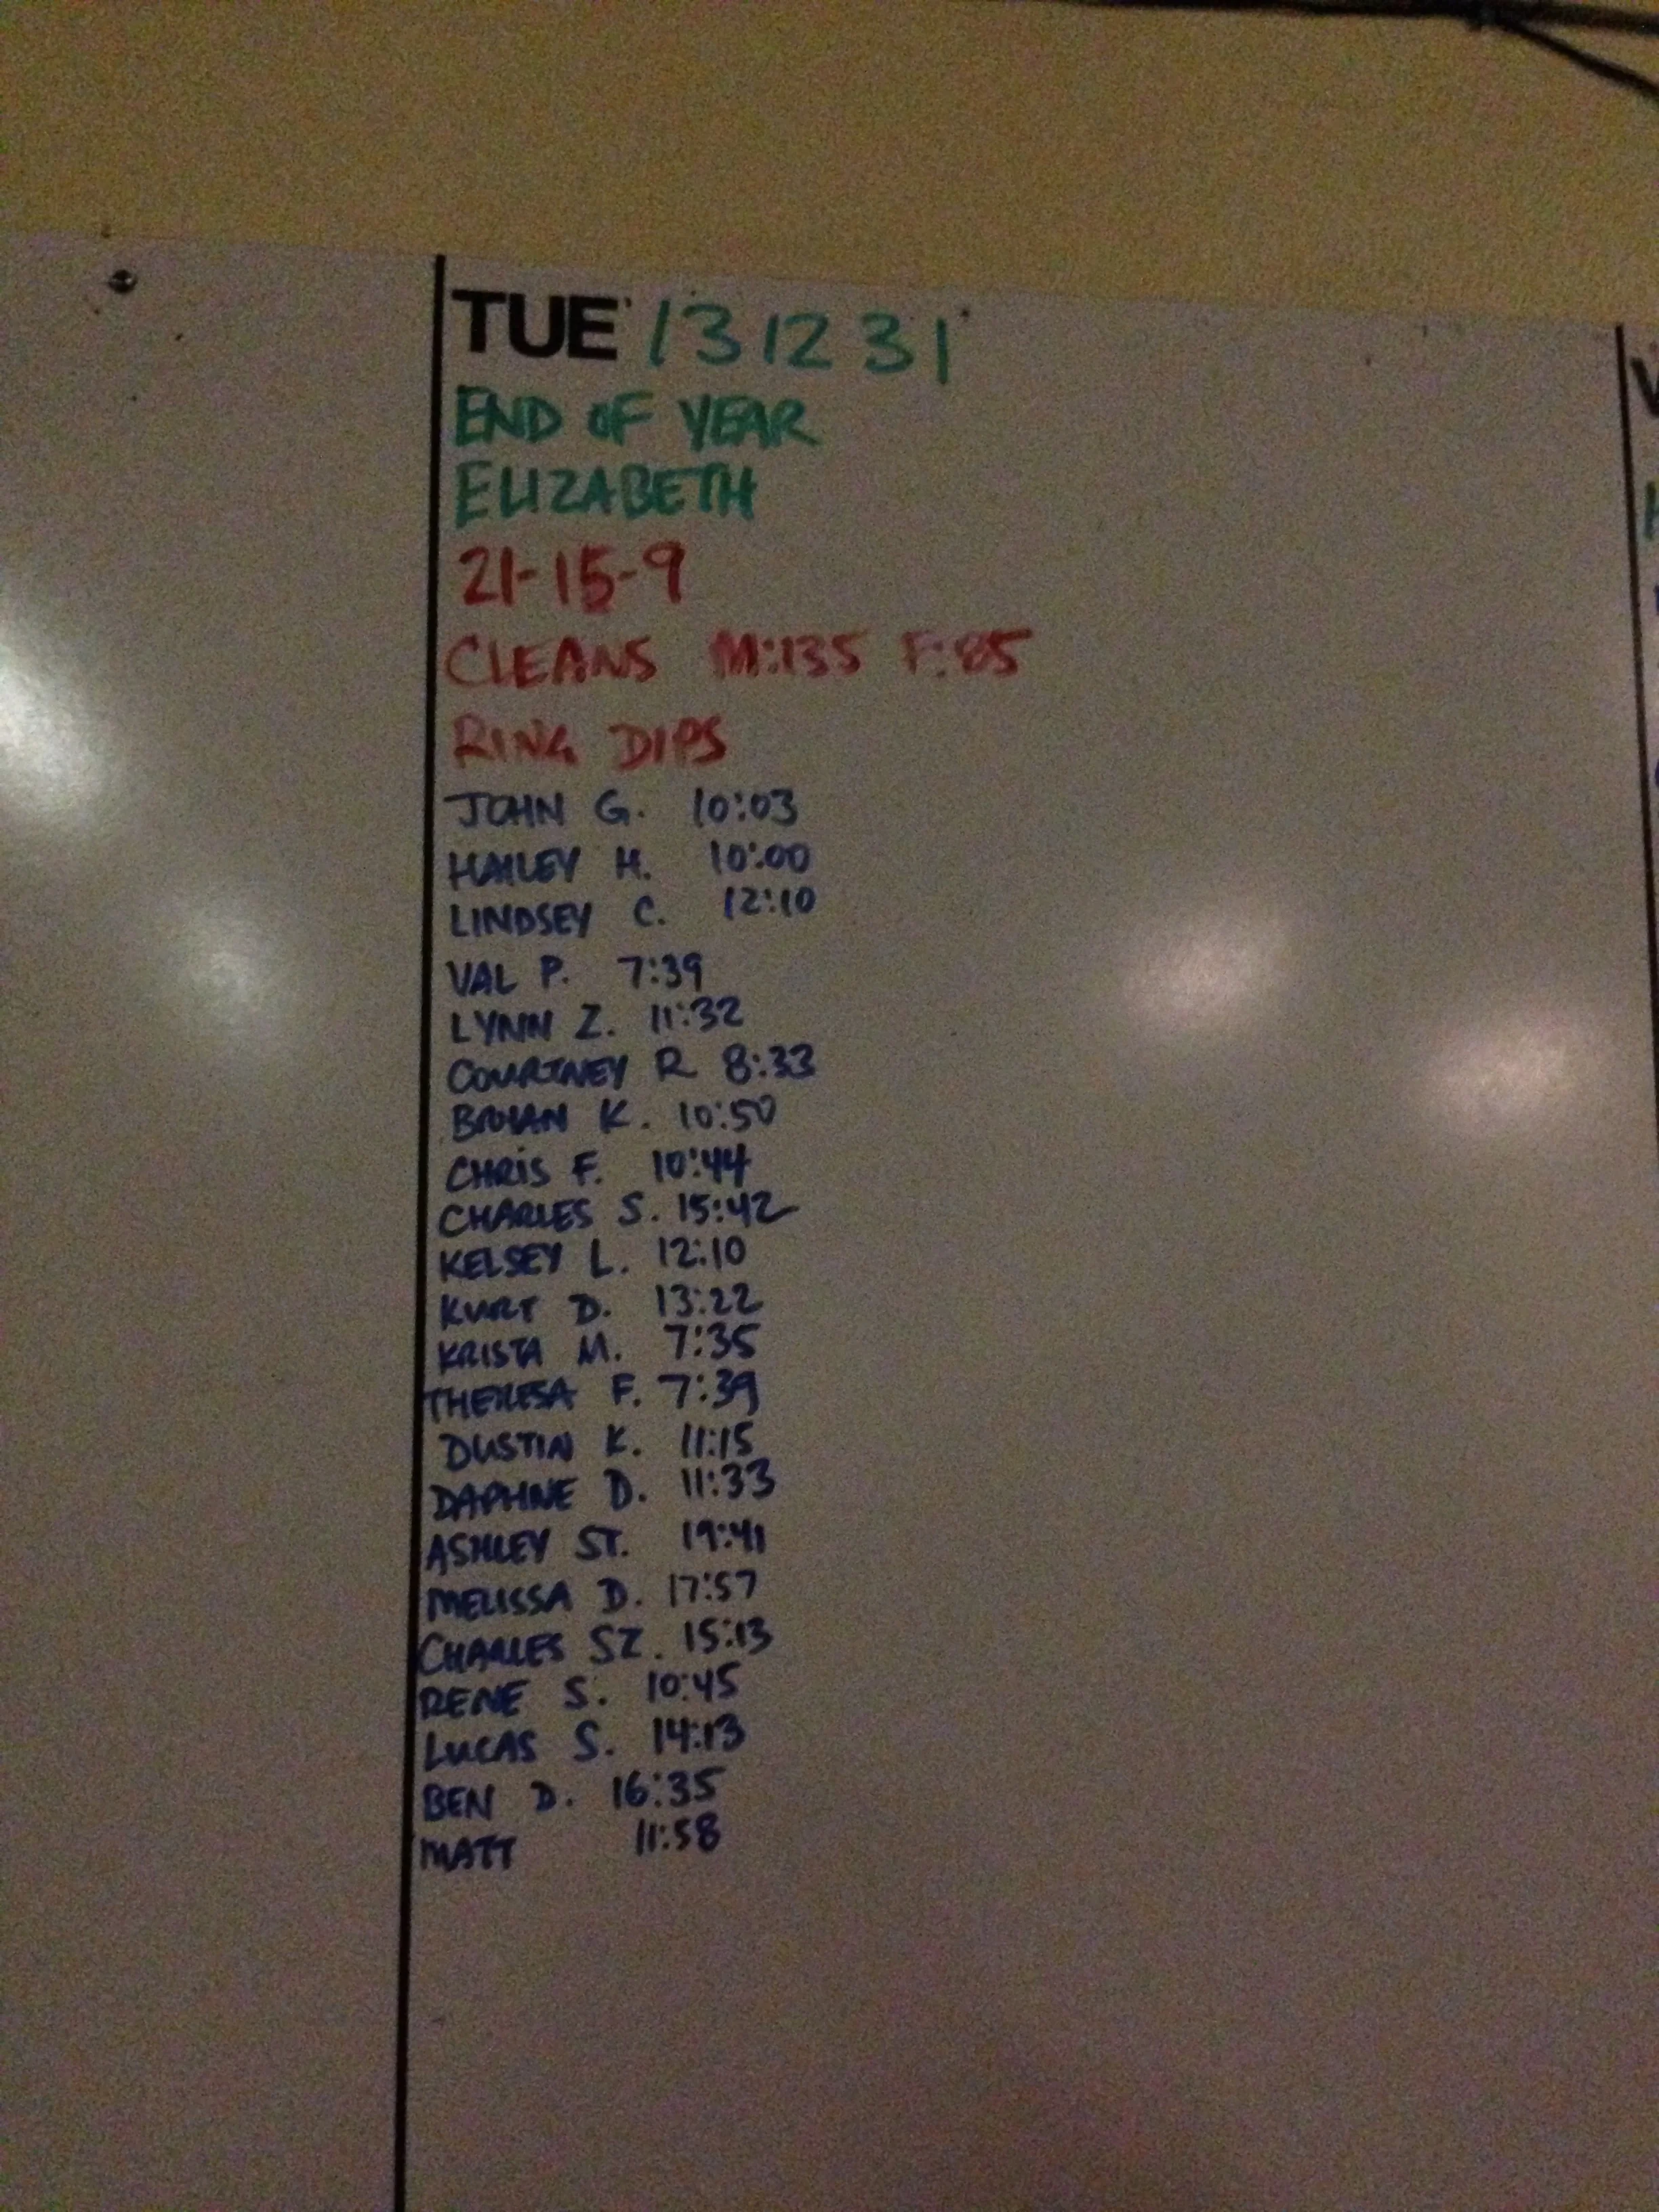 TUE 131231
END OF YEAR
ELIZABETH
21-15-9
CLEANS M:135 F:85
RING DIPS
JOHN G. 10:03
HAILEY H. 10:00
LINDSEY C. 12:10
VAL P. 7:39
LYNN Z. 11:32
COURTNEY R 8:33
BRYAN K. 10:50
CHRIS F. 10:44
CHARLES S. 15:42
KELSEY L. 12:10
KURT D. 13:22
KRISTA M. 7:35
THERESA F. 7:39
DUSTIN K. 11:15
DAPHNE D. 11:33
ASHLEY ST. 19:41
MELISSA D. 17:57
CHARLES SZ. 15:13
RENE S. 10:45
LUCAS S. 14:13
BEN D. 16:35
MATT 11:58